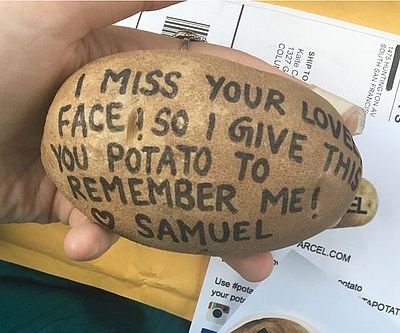 I MISS YOUR LOVE
FACE! SO I GIVE THIS
YOU POTATO TO
REMEMBER ME!
♡ SAMUEL
SHIP TO
1327 G
COLU
1475 HUNTINGTON AV
SOUTH SAN FRANCISC
ARCEL.COM
Use #pota
your pota
potato
TAPOTAT